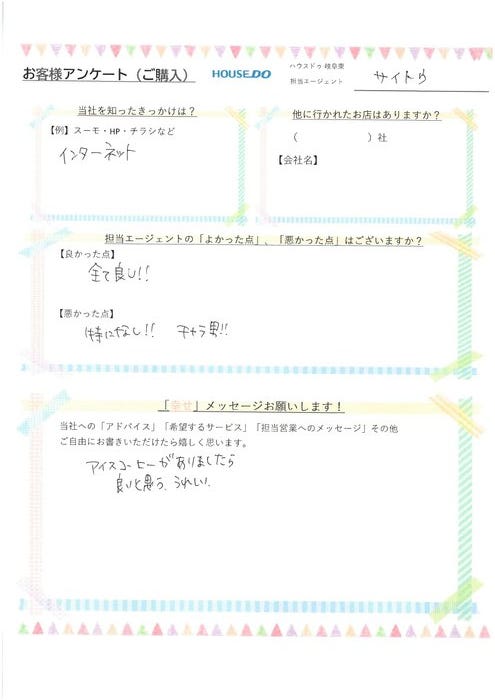 お客様アンケート（ご購入）
HOUSE DO
ハウスドゥ 岐阜東
担当エージェント サイトウ
当社を知ったきっかけは？
【例】スーモ・HP・チラシなど
インターネット
他に行かれたお店はありますか？
（ ）社
【会社名】
担当エージェントの「よかった点」、「悪かった点」はございますか？
【良かった点】
全て良し!!
【悪かった点】
特になし!! チャラ男!!
「幸せ」メッセージお願いします！
当社への「アドバイス」「希望するサービス」「担当営業へのメッセージ」その他
ご自由にお書きいただけたら嬉しく思います。
アイスコーヒーがありましたら
良いと思う、うれしい、